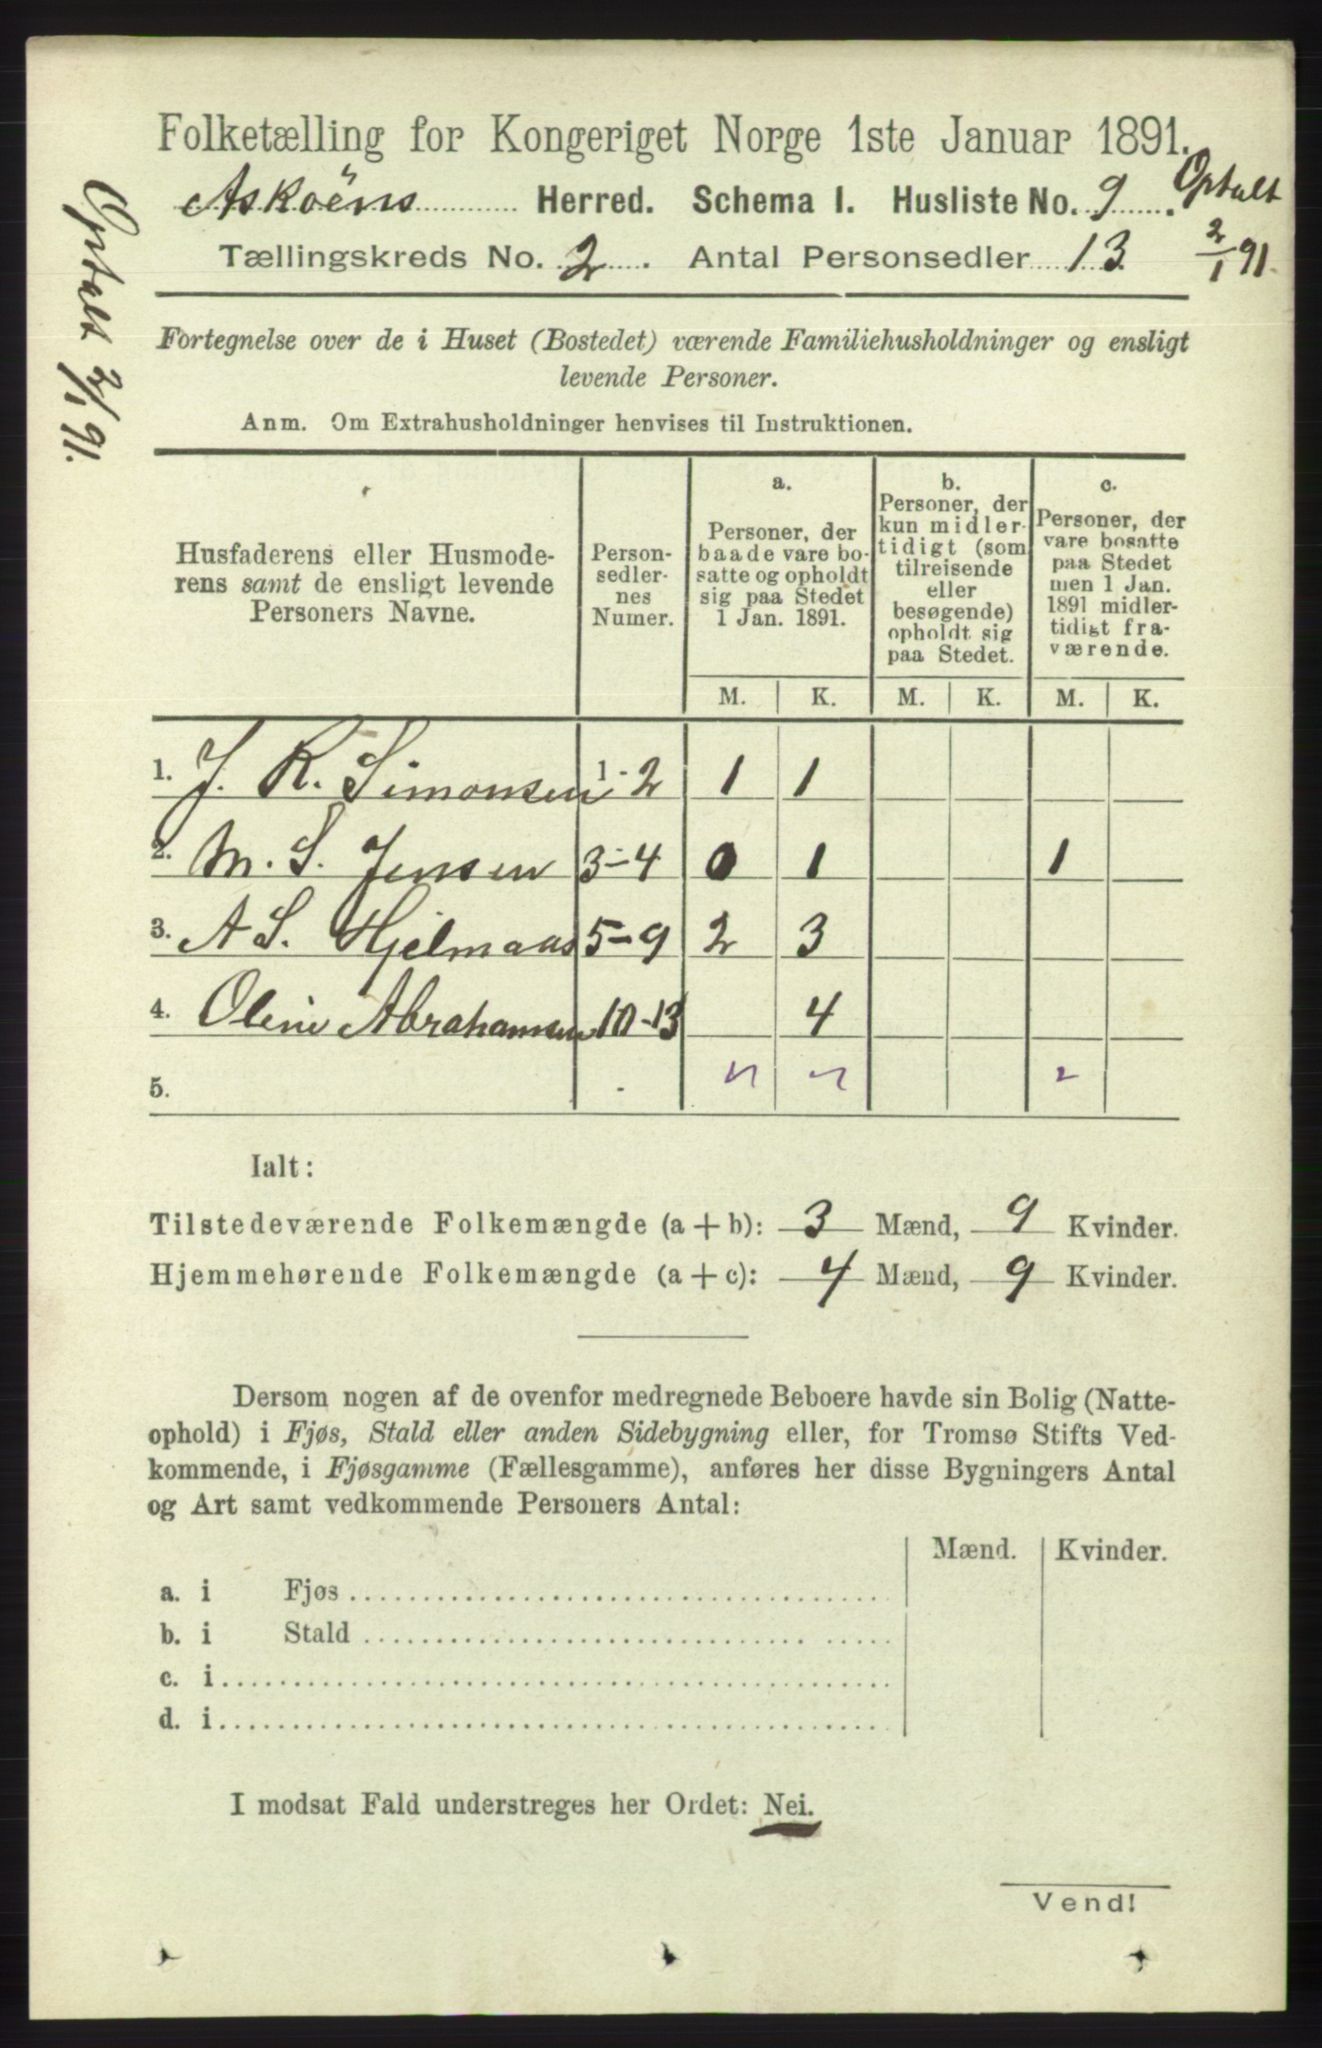 Folketælling for Kongeriget Norge 1ste Januar 1891.
Askoëns Herred. Schema I. Husliste No. 9.
Optalt 2/1 91.
Tællingskreds No. 2. Antal Personsedler 13
Optalt 2/1 91.
Fortegnelse over de i Huset (Bostedet) værende Familiehusholdninger og ensligt
levende Personer.
Anm. Om Extrahusholdninger henvises til Instruktionen.
Husfaderens eller Husmode-
rens samt de ensligt levende
Personers Navne.
Person-
sedler-
nes
Numer.
a.
Personer, der
baade vare bo-
satte og opholdt
sig paa Stedet
1 Jan. 1891.
b.
Personer, der
kun midler-
tidigt (som
tilreisende
eller
besøgende)
opholdt sig
paa Stedet.
c.
Personer, der
vare bosatte
paa Stedet
men 1 Jan.
1891 midler-
tidigt fra-
værende.
M. K. M. K. M. K.
1. J. R. Simonsen 1-2 1 1
2. M. S. Jensen 3-4 0 1 1
3. A S. Hjelmaas 5-9 2 3
4. Oline Abrahamsen 10-13 4
5.
Ialt:
Tilstedeværende Folkemængde (a + b): 3 Mænd, 9 Kvinder.
Hjemmehørende Folkemængde (a + c): 4 Mænd, 9 Kvinder.
Dersom nogen af de ovenfor medregnede Beboere havde sin Bolig (Natte-
ophold) i Fjøs, Stald eller anden Sidebygning eller, for Tromsø Stifts Ved-
kommende, i Fjøsgamme (Fællesgamme), anføres her disse Bygningers Antal
og Art samt vedkommende Personers Antal:
Mænd. Kvinder.
a. i Fjøs
b. i Stald
c. i
d. i
I modsat Fald understreges her Ordet: Nei.
Vend!